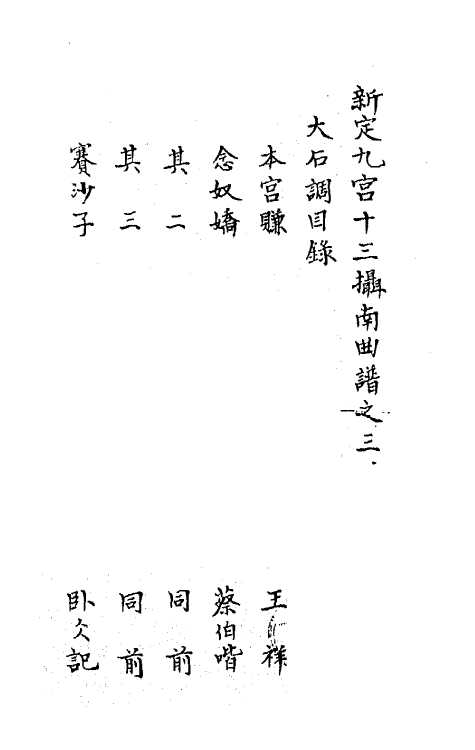 新定九宫十三攝南曲譜之三
大石調目錄
本宫賺 王祥
念奴嬌 蔡伯喈
其二 同前
其三 同前
賽沙子 卧仌記